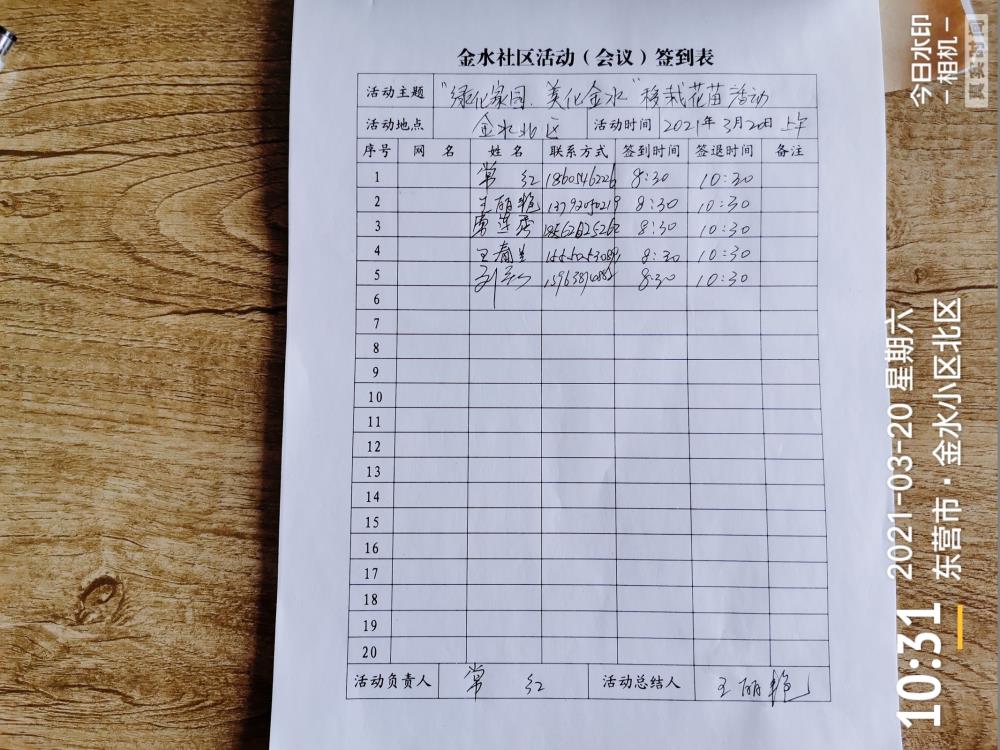 金水社区活动（会议）签到表
活动主题 "绿化家园、美化金水"移栽花苗活动
活动地点 金水北区 活动时间 2021年3月20日 上午
序号 网 名 姓 名 联系方式 签到时间 签退时间 备注
1 常 红 8:30 10:30
2 王丽艳 8:30 10:30
3 8:30 10:30
4 王春兰 8:30 10:30
5 8:30 10:30
6
7
8
9
10
11
12
13
14
15
16
17
18
19
20
活动负责人 常 红 活动总结人 王丽艳
今日水印
-相机-
真实时间
10:31
2021-03-20 星期六
东营市·金水小区北区